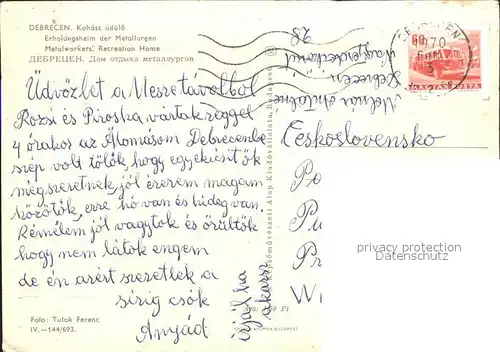 DEBRECEN, Kohász üdülő
Erholungsheim der Metallurgen
Metalworkers' Recreation Home
ДЕБРЕЦЕН, Дом отдыха металлургов
Üdvözlet a Mesretavolbol
Rozsi és Piroska vártak reggel
4 órakor az Álomásom Debrecenbe
szép volt tölök, hogy egyekicsit ök
mégszeretnek, jól érezem magam
közötök, erre hó van és hideg van.
Rémélem jól vagytok és örültök
hogy nem látok engem
de én azért szeretlek a
sirig csók
Anyád
írjál ha akarsz
Foto: Tulok Ferenc
IV.—144/693.
Képzőművészeti Alap Kiadóvállalata, Budapest
Ára: Ft
DEBRECEN
70
60f
MAGYAR POSTA
Debrecen
28
Československo
Po
Pu
Pr
W
privacy protection
Ansichtskartenhandel